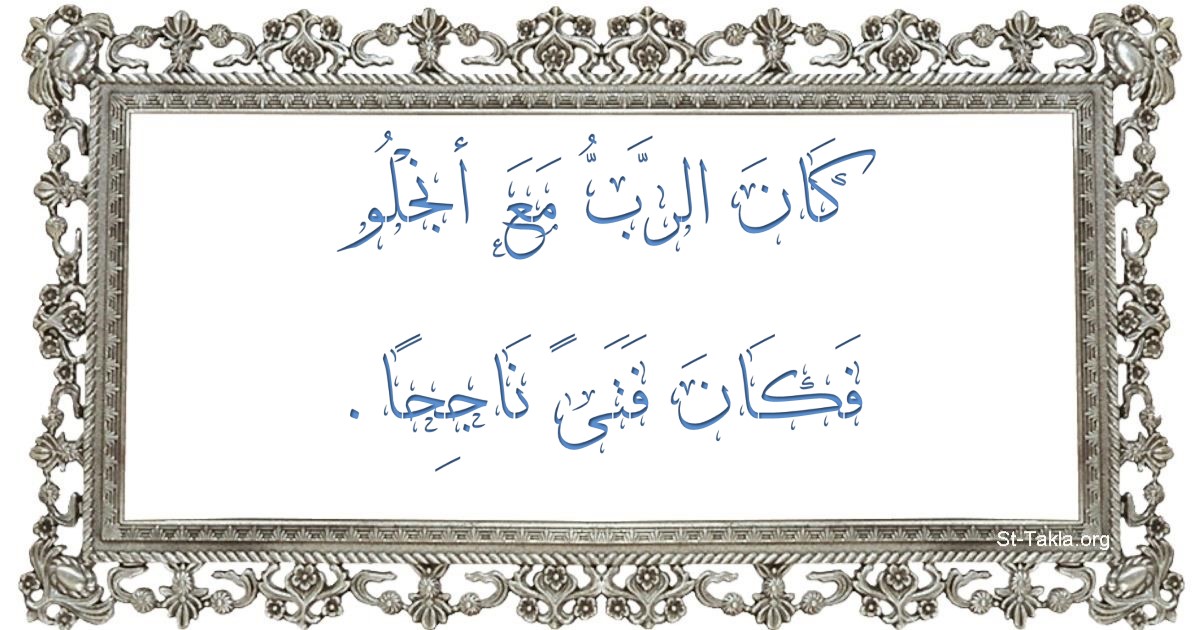 كَانَ الرَّبُّ مَعَ أنجْلُو
فَكَانَ فَتَىً نَاجِحًا .
St-Takla.org